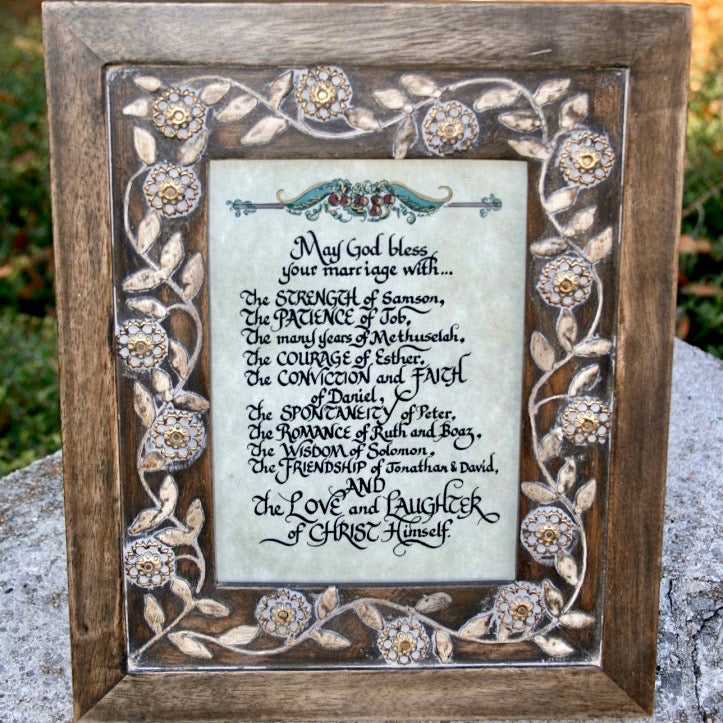 May God bless
your marriage with...
The STRENGTH of Samson,
The PATIENCE of Job,
The many years of Methuselah,
The COURAGE of Esther,
The CONVICTION and FAITH
of Daniel,
The SPONTANEITY of Peter,
The ROMANCE of Ruth and Boaz,
The WISDOM of Solomon,
The FRIENDSHIP of Jonathan & David,
AND
the LOVE and LAUGHTER
of CHRIST Himself.